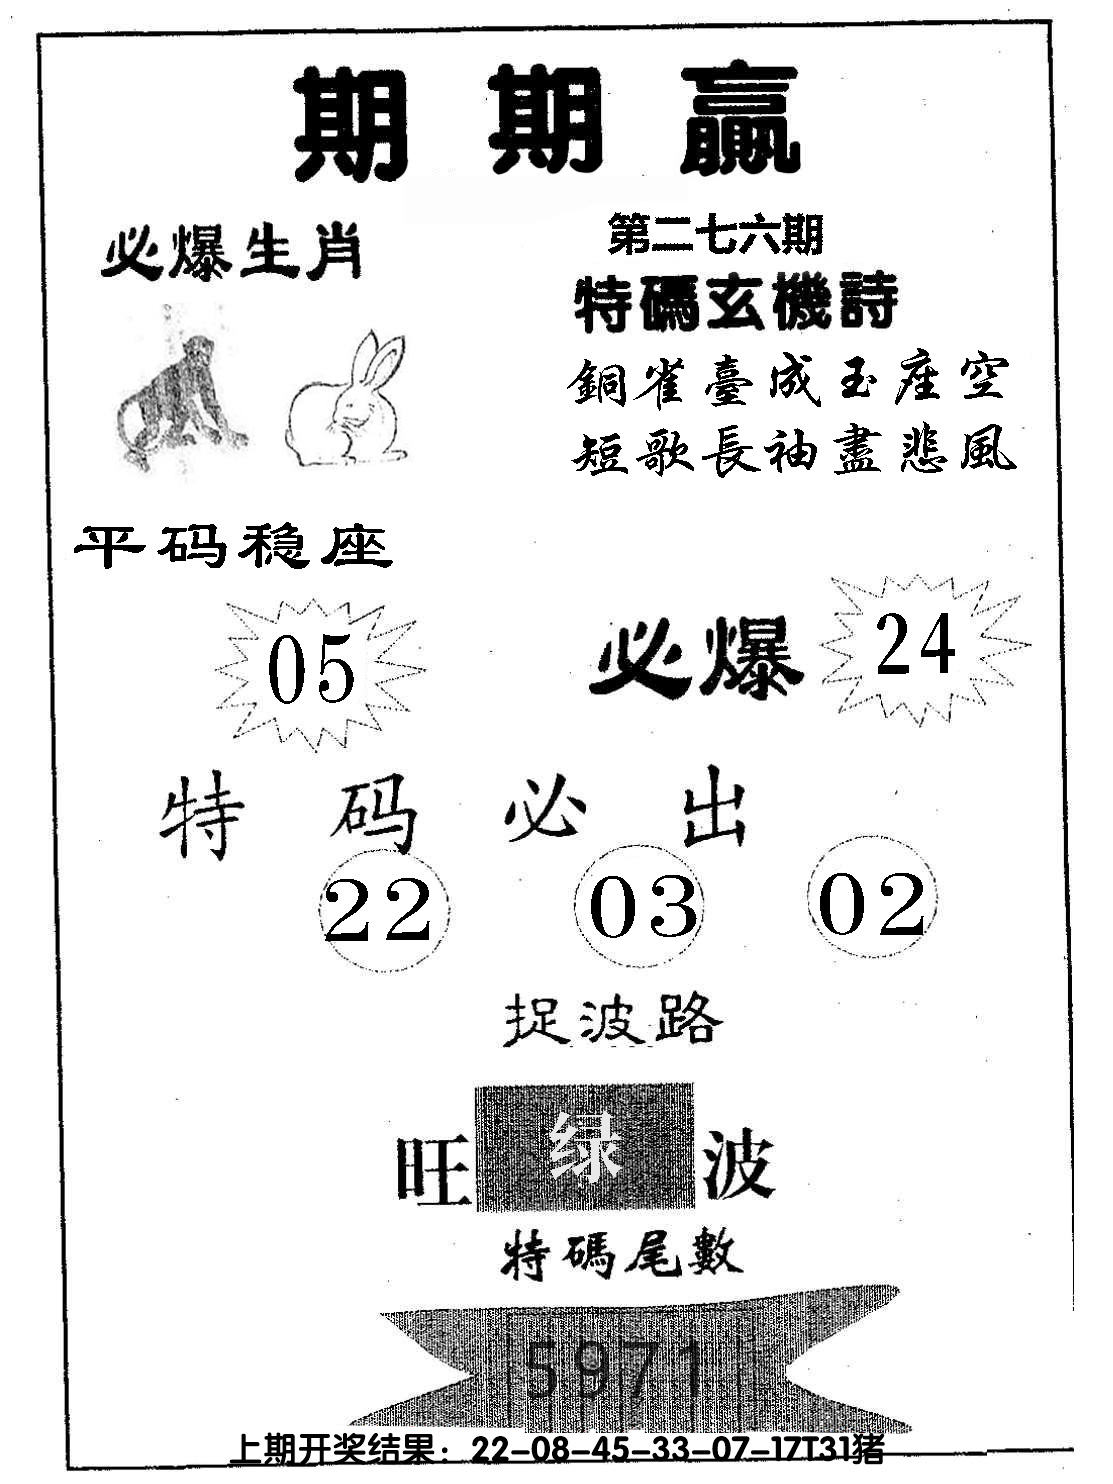 期期贏
必爆生肖
第二七六期
特碼玄機詩
銅雀臺成玉座空
短歌長袖盡悲風
平码稳座
05
必爆
24
特码必出
22 03 02
捉波路
旺绿波
特碼尾數
5971
上期开奖结果：22-08-45-33-07-17T31猪